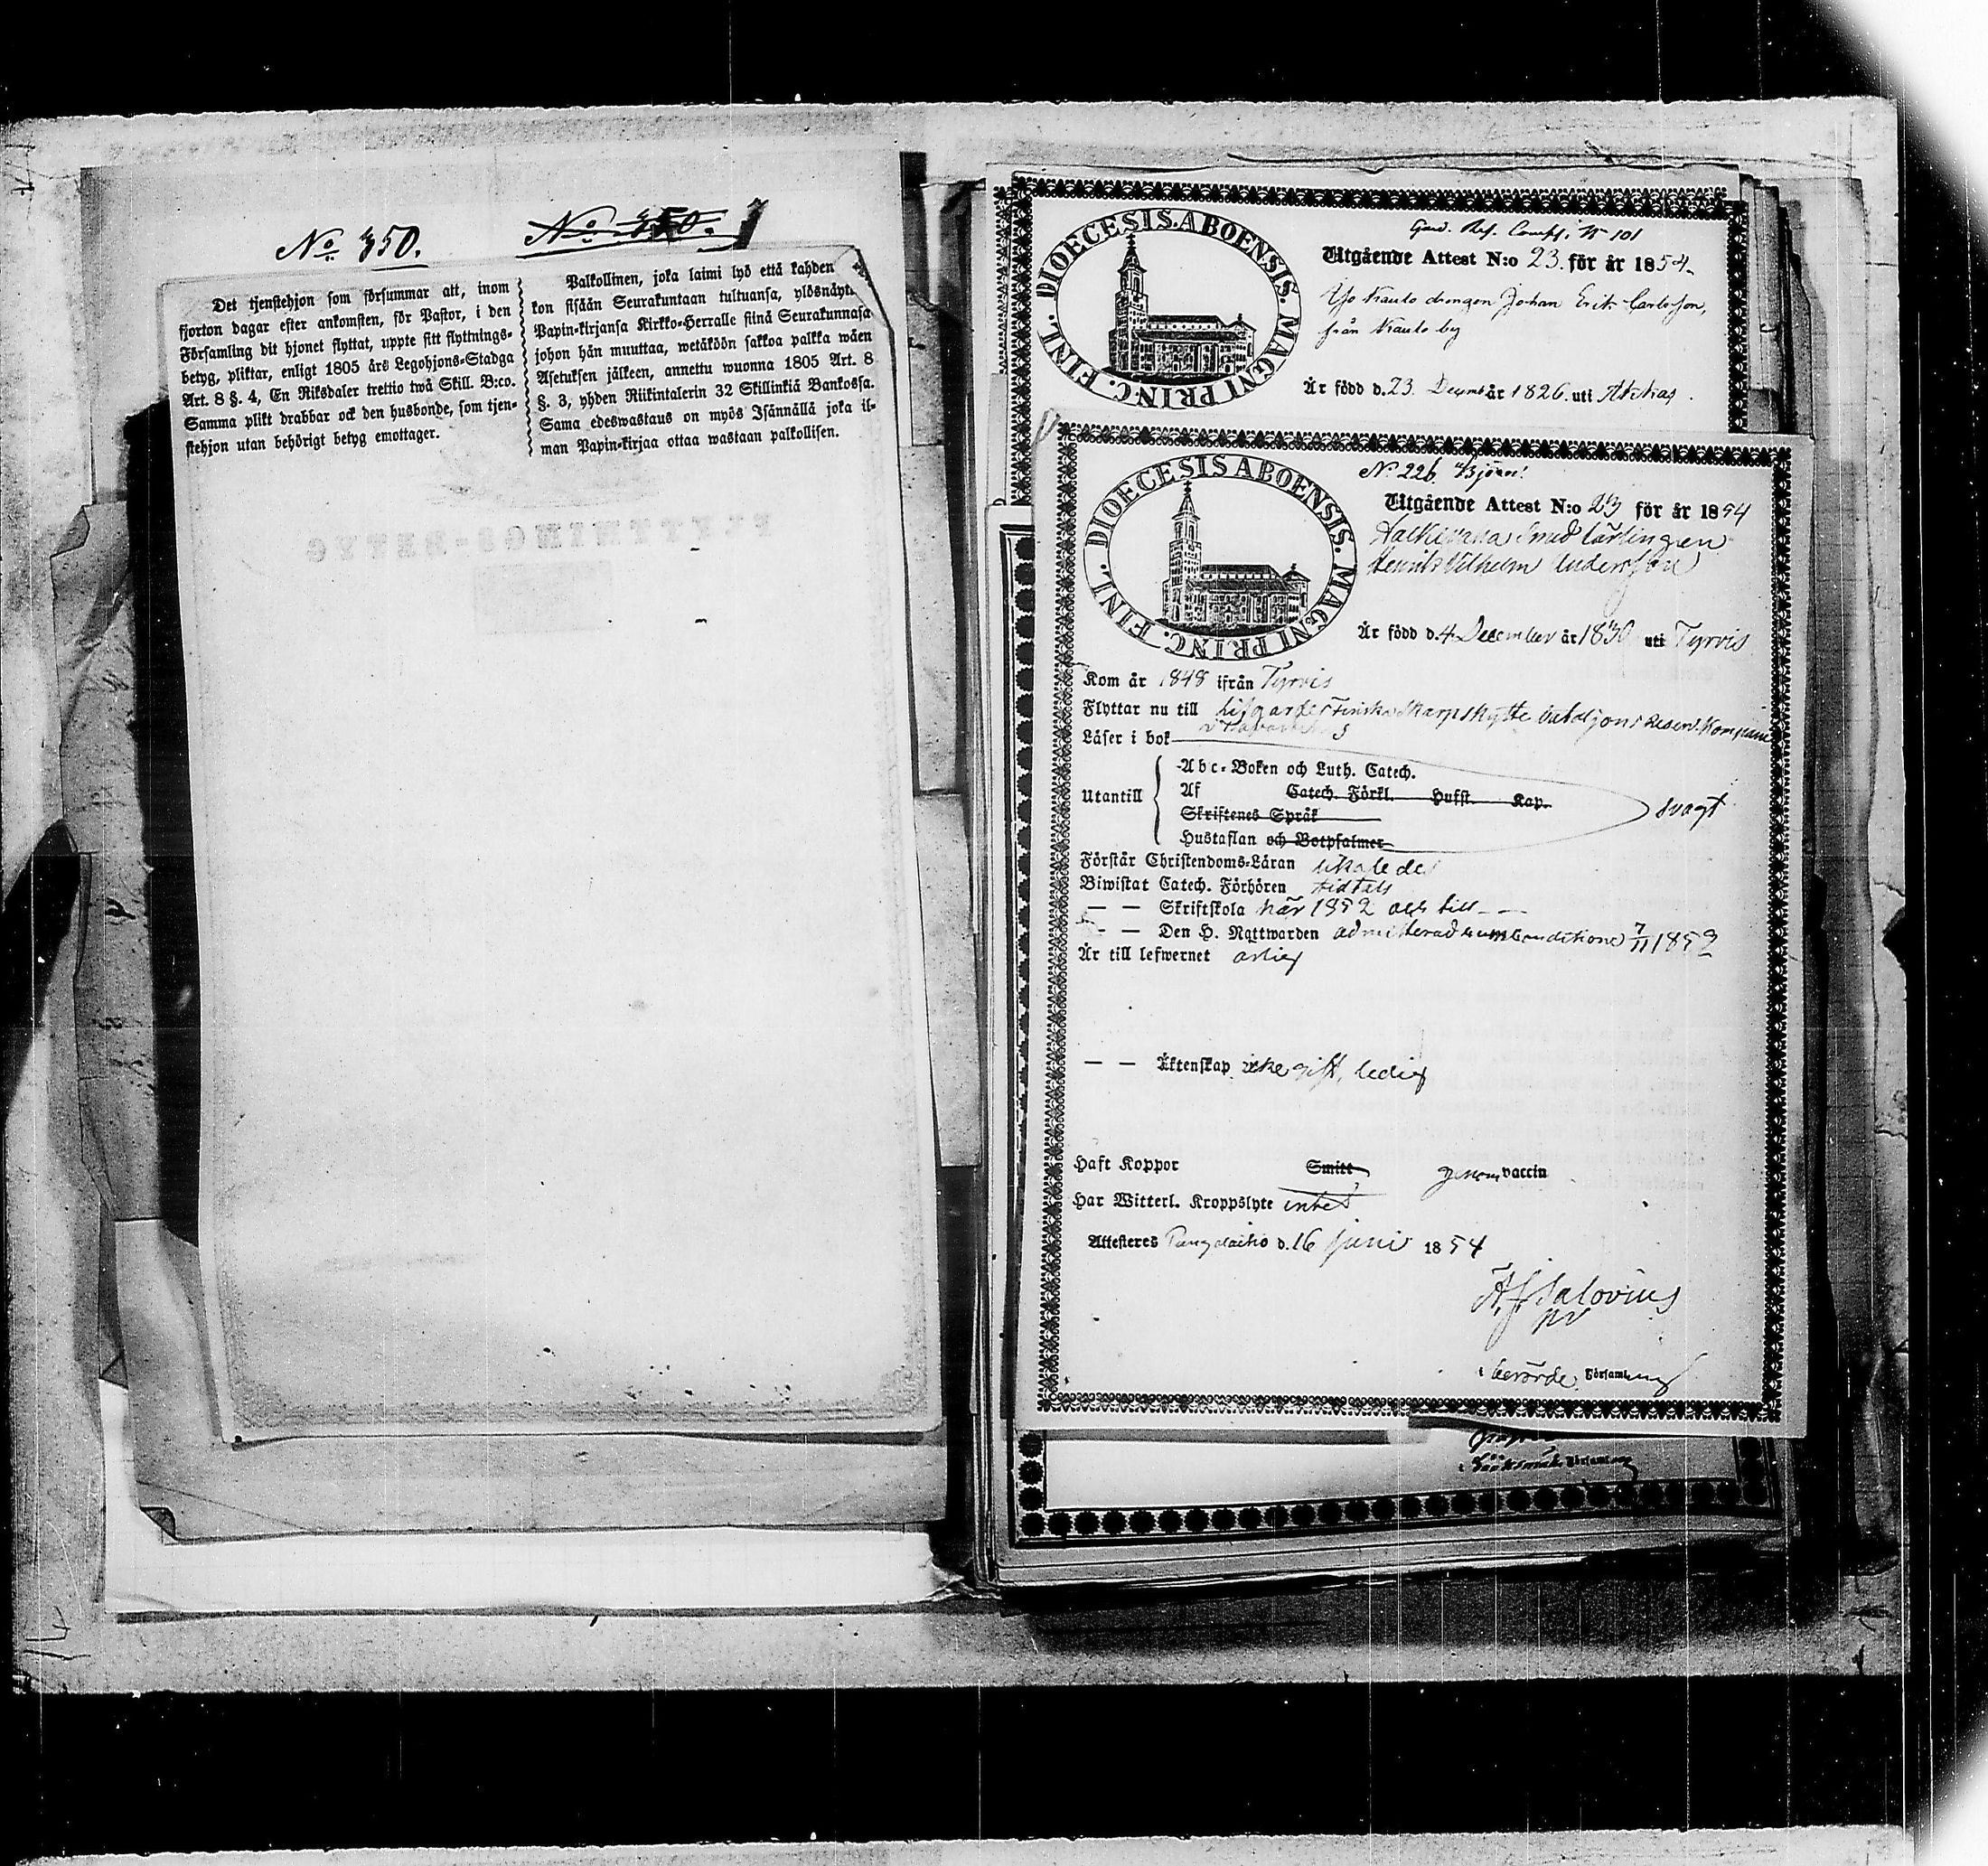 No 350.
No 350.
Det tjenstehjon som försummar att, inom
fjorton dagar efter ankomsten, för Pastor, i den
Församling dit hjonet flyttat, uppte sitt flyttnings-
betyg, pliktar, enligt 1805 års Legohjons-Stadga
Art. 8 §. 4, En Riksdaler trettio twå Skill. B:co.
Samma plikt drabbar ock den husbonde, som tjen-
stehjon utan behörigt betyg emottager.
Palkollinen, joka laimi lyö että kahden
kon sisään Seurakuntaan tultuansa, ylösnäyt
Papin-kirjansa Kirkko-Herralle siinä Seurakunnasa
johon hän muuttaa, wetäköön sakkoa palkka wäen
Asetuksen jälkeen, annettu wuonna 1805 Art. 8
§. 3, yhden Riikintalerin 32 Skillinkiä Bankossa.
Sama edeswastaus on myös Isännällä joka il-
man Papin-kirjaa ottaa wastaan palkollisen.
DIOECESIS ABOENSIS. MAGNI PRINC. FINL.
Gard. Res. Comp. N 101
Utgående Attest N:o 23. för år 1854.
drengen Johan Erik Carlsson,
från Krauto by
Är född d. 23 Decemb år 1826. uti Akkas.
DIOECESIS ABOENSIS. MAGNI PRINC. FINL.
No 226.
Utgående Attest N:o 23 för år 1854
Smed lärlingen
Henrik Vilhelm Andersson
Är född d. 4 December år 1830 uti Tyrvis
Kom år 1848 ifrån Tyrvis
Flyttar nu till Lifgardes Finska Skarpskytte bataljons Reserv Kompanie
i Tavastehus
Läser i bok
Utantill
Abc-Boken och Luth. Catech.
Af Catech. Förkl. Hufst. Kap.
Skriftenes Språk
Hustaflan och Botpsalmer
svagt
Förstår Christendoms-Läran likaledes
Biwistat Catech. Förhören tidtals
— — Skriftskola här 1852 och till
— — Den H. Nattwarden admitterad sum conditione 7/11 1852
Är till lefwernet ärlig
— — Äktenskap icke gift, ledig
Haft Koppor Smitt genom vaccin
Har Witterl. Kroppslyte intet
Attesteres d. 16 juni 1854
A. F. Salovius
i berörde Församling
Församling